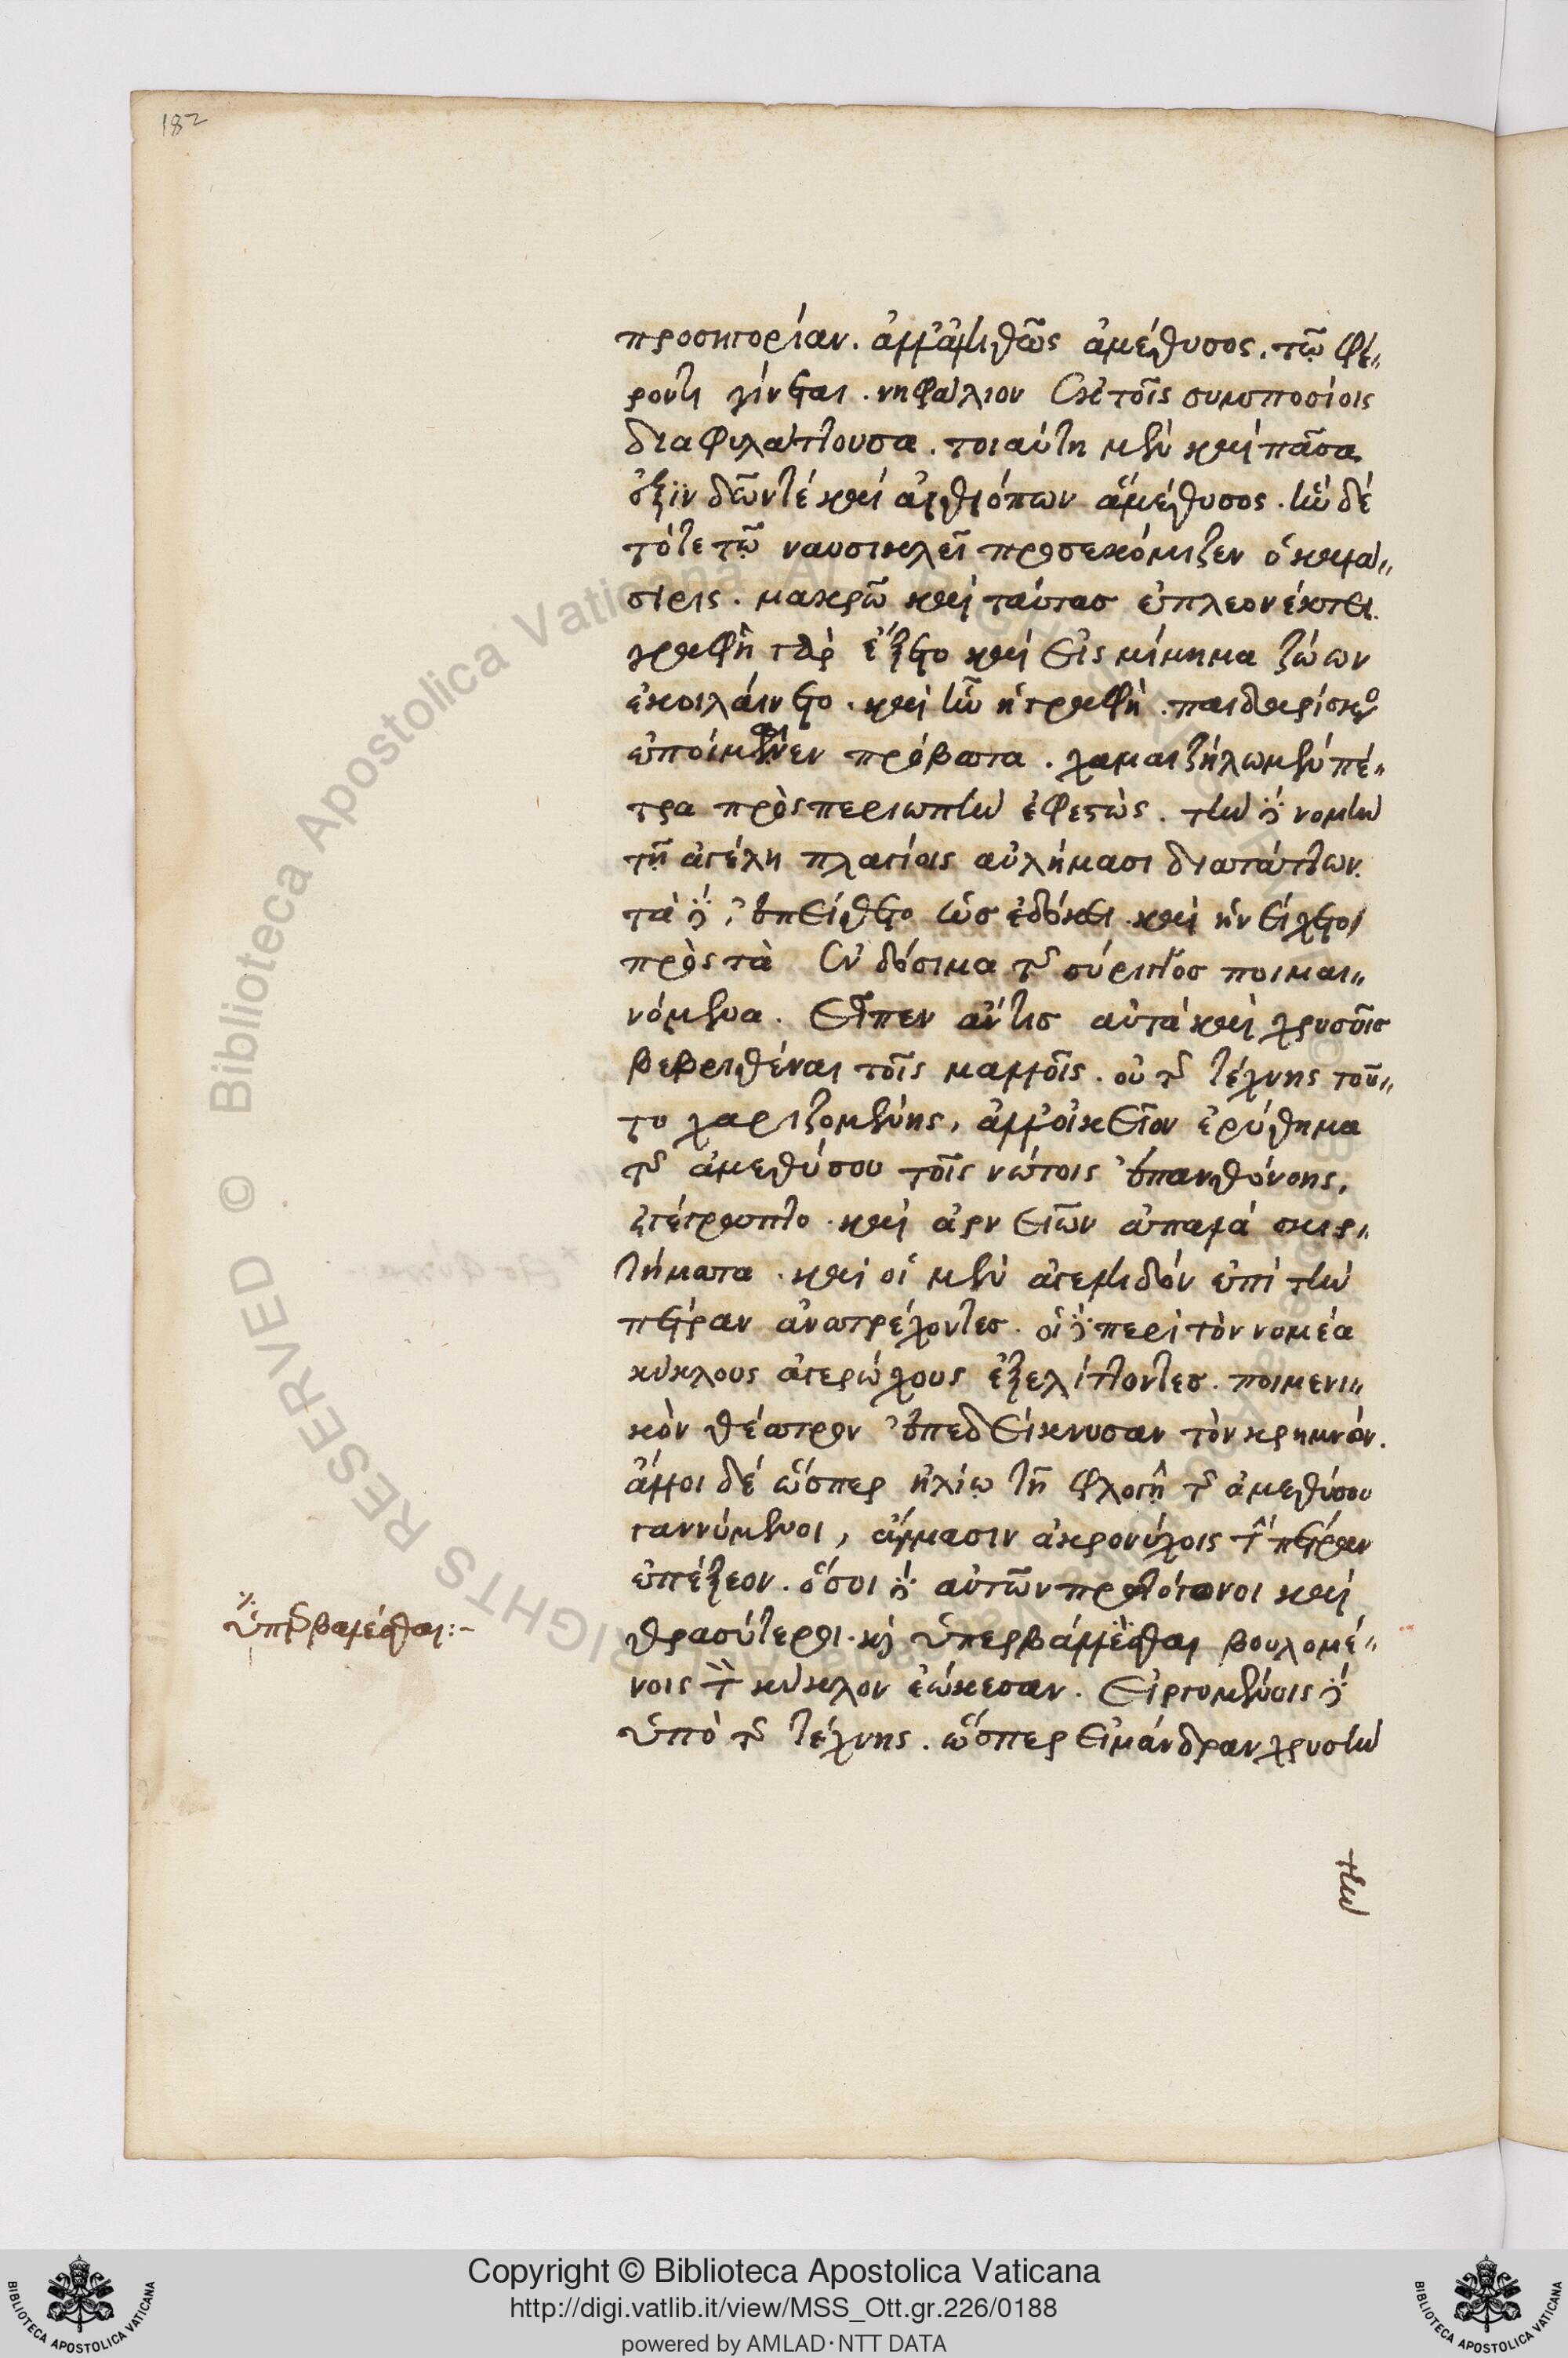 182
προσηγορίαν. ἀλλ' ἀληθῶς ἀμέθυσος. τῷ φέ„
ροντι γίνεται. νηφάλιον ἐν τοῖς συμποσίοις
διαφυλάττουσα. τοιαύτη μὲν καὶ πᾶσα
ἐξ ἰνδῶν τέ καὶ αἰθιόπων ἀμέθυσος. ἣν δέ
τότε τῷ ναυσικλεῖ προσεκόμιζεν ὁ καλα„
σιρις. μακρῶ καὶ ταύτας ἐπλεονέκτει.
γραφῆ γὰρ ἔξετο καὶ εἰς μίμημα ζώων
ἐκοιλάινετο. καὶ ἦν ἡ γραφὴ. παιδαρίσκος
ἐποίμαινεν πρόβατα. χαμαιζήλω μὲν πέ„
τρα πρὸς περιωπὴν ἐφεστὼς. τὴν δὲ νομὴν
τῆ ἀγέλη πλαγίοις αὐλήμασι διατάττων.
τὰ δὲ ἐπείθετο ὡς ἐδόκει. καὶ ἠνείχετο
πρὸς τὰ ἐνδόσιμα τῆς σύριγγος ποιμαι„
νόμενα. εἶπεν ἄν τις αὐτὰ καὶ χρυσοῖς
βεβριθέναι τοῖς μαλλοῖς. οὐ τῆς τέχνης τοῦ„
το χαριζομένης, ἀλλ' οἰκεῖον ἐρύθημα
τῆς ἀμεθύσου τοῖς νώτοις ἐπανθούσης.
γέγραπτο. καὶ ἀρνειῶν ἁπαλά σκιρ„
τήματα. καὶ οἱ μὲν ἀγεληδόν ἐπὶ τὴν
πέτραν ἀνατρέχοντες. οἱ δὲ περὶ τὸν νομέα
κύκλους ἀγερώχους ἐξελίττοντες. ποιμενι„
κὸν θέατρον ἐπεδείκνυσαν τὸν κρημνόν.
ἄλλοι δέ ὥσπερ ἡλίῳ τῆ φλογῆ τῆς ἀμεθύσου
γαννύμενοι, ἅλμασιν ἀκρονύχοις τὴν πέτραν
ἐπέξεον. ὅσοι δὲ αὐτῶν πρωτόγονοι καὶ
θρασύτεροι. καὶ ὑπερβάλλεσθαι βουλομέ„
νοις τὸν κύκλον ἐώκεσαν. εἰργομένοις δὲ
ὑπὸ τῆς τέχνης. ὥσπερ εἰ μάνδραν χρυσὴν
ὑπερβαλέσθαι:–
τὴν
Copyright © Biblioteca Apostolica Vaticana
http://digi.vatlib.it/view/MSS_Ott.gr.226/0188
powered by AMLAD·NTT DATA